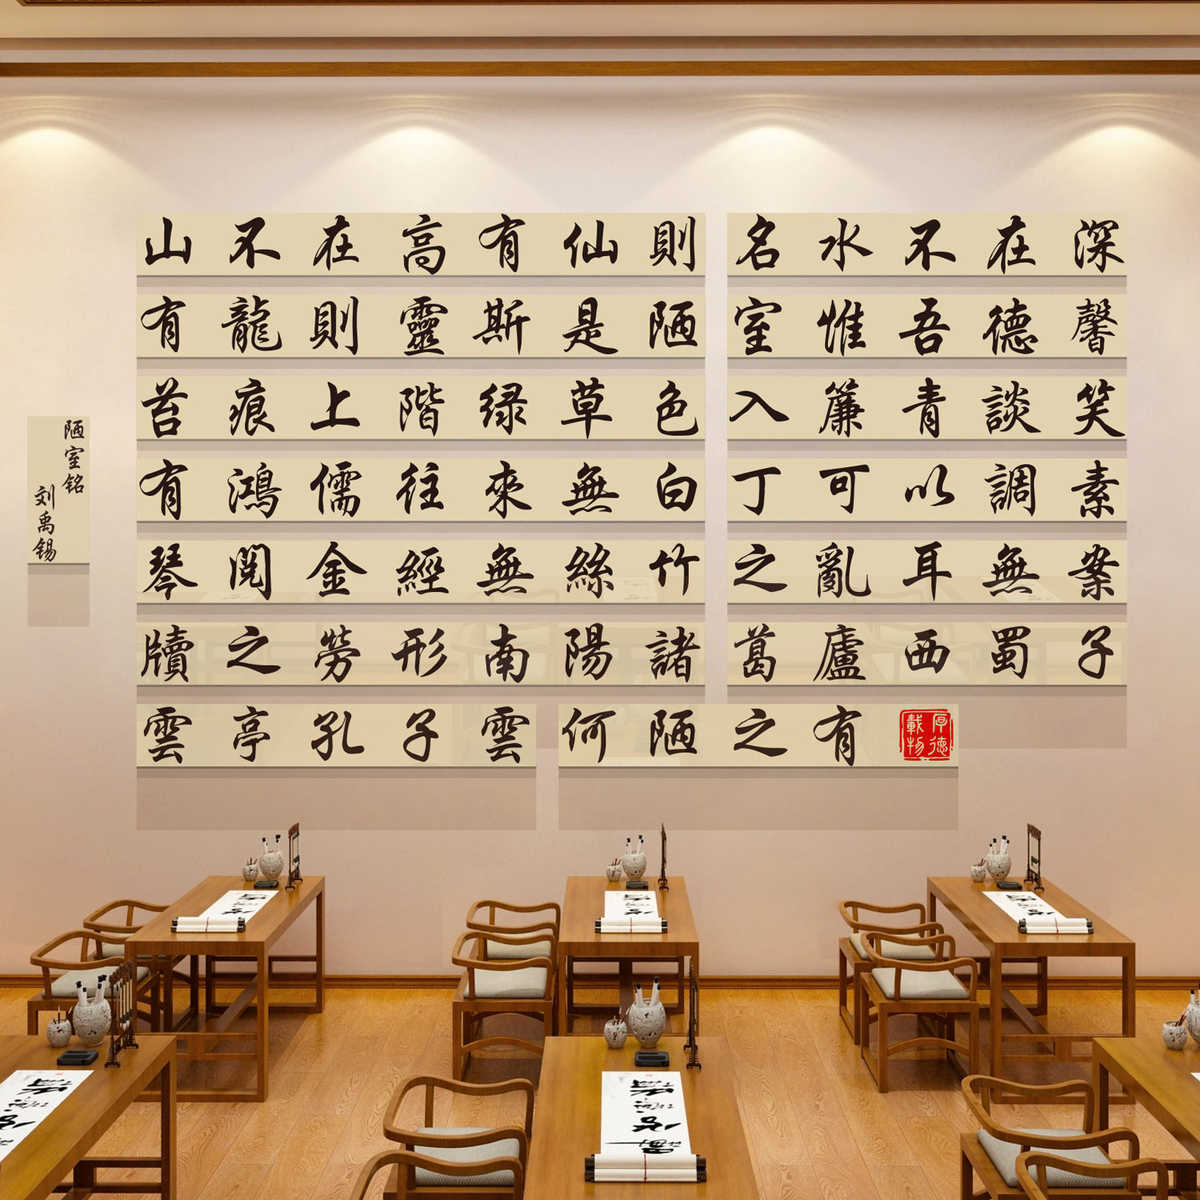 山不在高有仙則名水不在深
有龍則靈斯是陋室惟吾德馨
苔痕上階绿草色入簾青談笑
有鴻儒往來無白丁可以調素
琴閱金經無絲竹之亂耳無案
牘之勞形南陽諸葛廬西蜀子
雲亭孔子雲何陋之有
厚德載物
陋室铭
刘禹锡